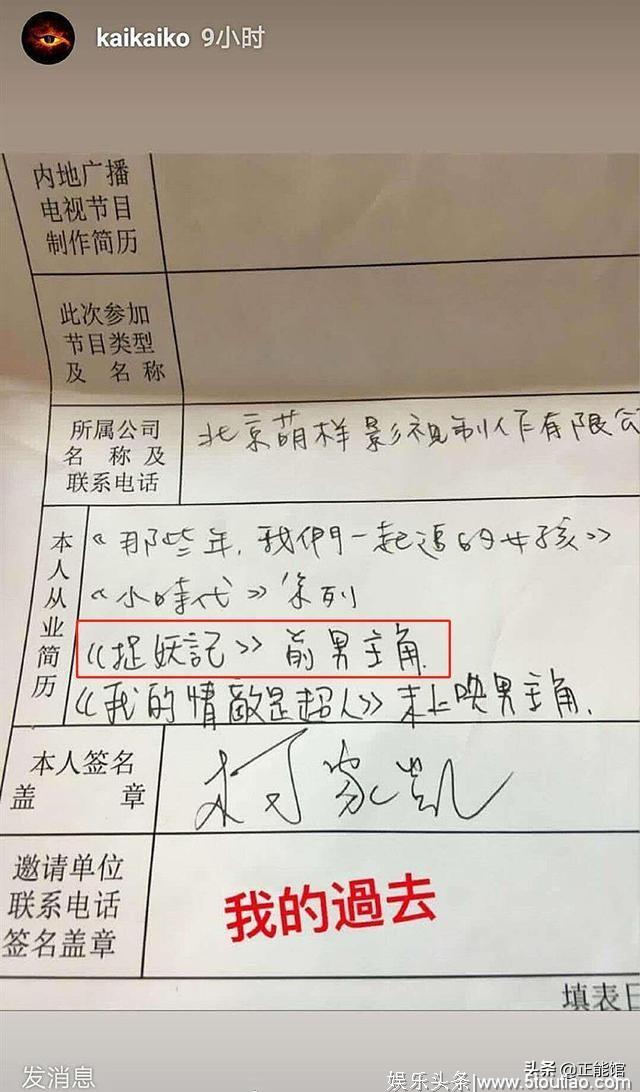 kaikaiko 9小时
内地广播
电视节目
制作简历
此次参加
节目类型
及 名 称
所属公司
名 称 及
联系电话
北京萌样影视制作有限公
本人从业简历
《那些年,我們一起追的女孩》
《小時代》系列
《捉妖記》前男主角.
《我的情敵是超人》未上映男主角.
本人签名
盖 章
柯家凯
邀请单位
联系电话
签名盖章
我的過去
填表日
发消息
头条@正能馆
娱乐头条|www.5toutiao.com